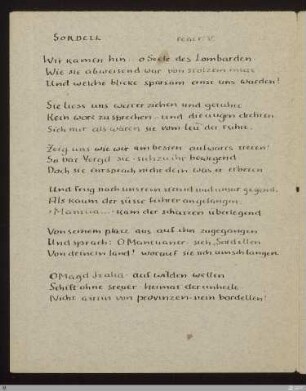 SORDELL
Wir kamen hin: o Seele des Lombarden
Wie sie abweisend war von stolzem
Und welche blicke sparsam ernst uns wurden!
Sie liess uns weiter ziehen und geruhte
Kein wort zu sprechen · und die augen drehten
Sich nur als wären sie vom leu der ruhte.
Zeig uns wie wir am besten aufwärts treten!
So trat Vergil sie suchend bewegend
Doch sie entsprach nicht dem was er erbeten
Und frug nach unsrem stand und unsrer gegend.
Als kaum der süsse führer angefangen:
›Mantua...‹ kam der schatten überlegend
Von seinem platz aus auf ihn zugegangen
Und sprach: O Mantuaner · sieh Sordellen
Von deinem land! worauf sie sich umschlangen.
O Magd Italia · auf wilden wellen
Schiff ohne steuer · heimat der unheile
Nicht herrin von provinzen · nein bordellen!